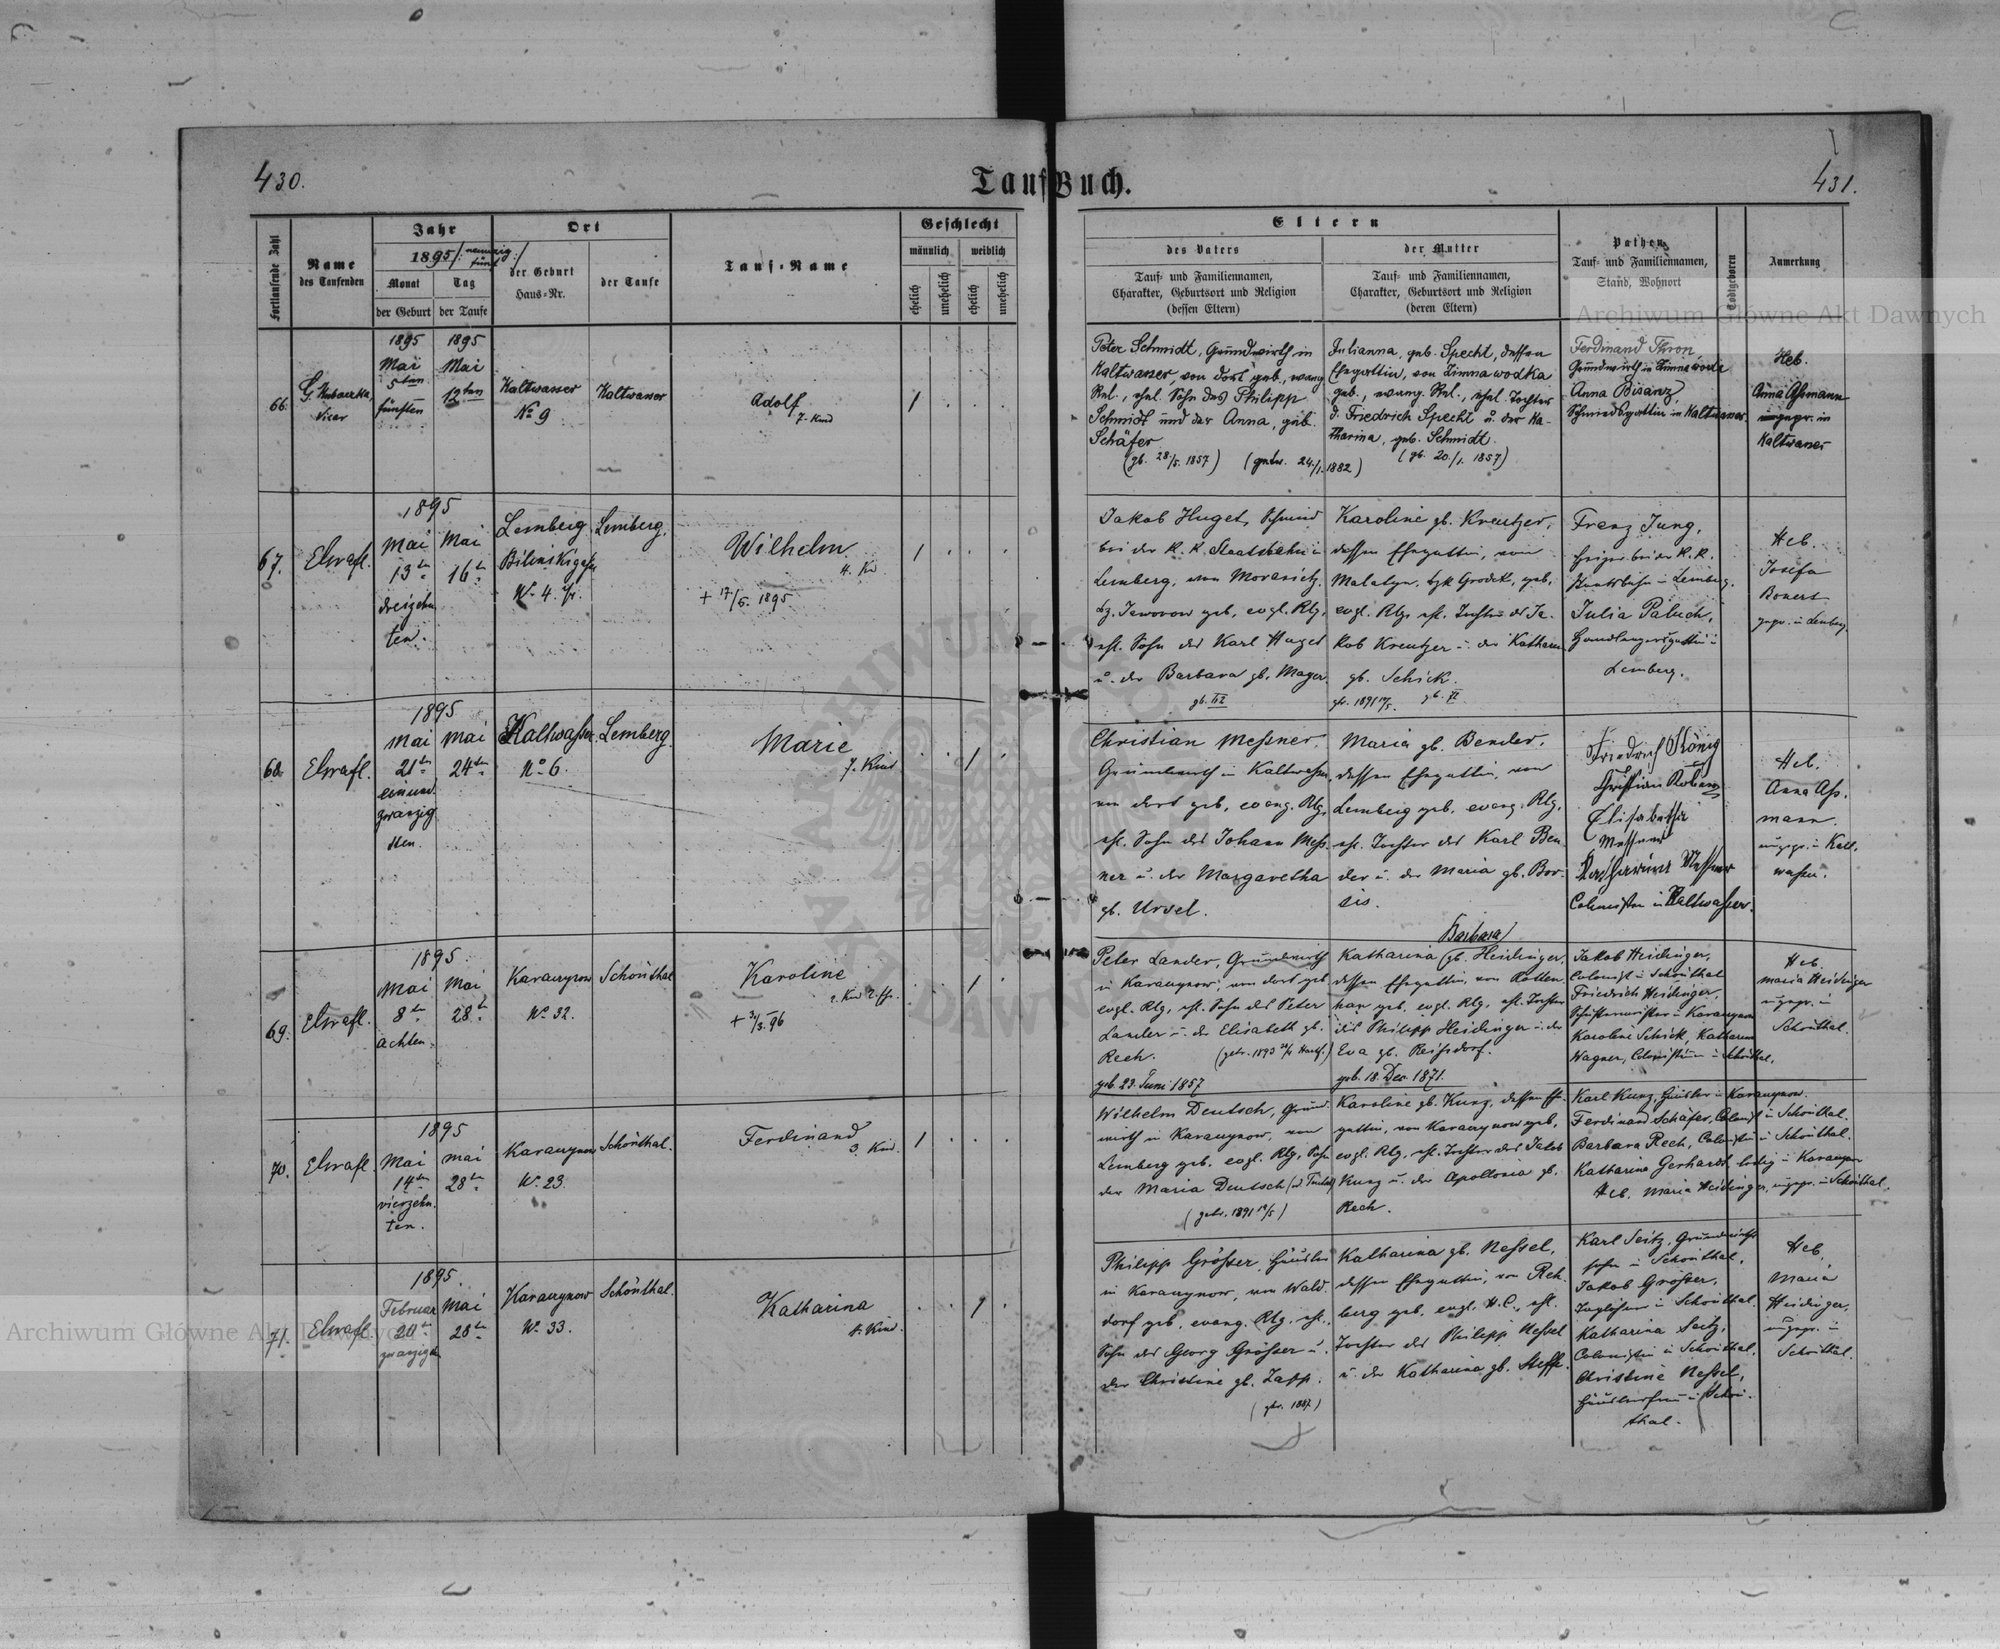 430.
Tauf Buch.
431.
Fortlaufende Zahl
Name
des Taufenden
Jahr
1895
Monat
Tag
der Geburt
der Taufe
Ort
der Geburt
Haus-Nr.
der Taufe
Tauf-Name
Geschlecht
männlich
weiblich
ehelich
unehelich
ehelich
unehelich
Eltern
des Vaters
Tauf- und Familiennamen,
Charakter, Geburtsort und Religion
(dessen Eltern)
der Mutter
Tauf- und Familiennamen,
Charakter, Geburtsort und Religion
(deren Eltern)
Pathen
Tauf- und Familiennamen,
Stand, Wohnort
Todtgeboren
Anmerkung
Archiwum Główne Akt Dawnych
66.
Vicar
1895
Mai
5ten
fünften
1895
Mai
12ten
Kaltwasser
No 9
Kaltwasser
Adolf
7. Kind
Peter Schmidt, Grundwirth in
Kaltwasser, von dort geb., evang.
Rel., ehel. Sohn des Philipp
Schmidt und der Anna, geb.
Schäfer
(gb. 28/5. 1857) (getr. 24./1. 1882)
Julianna, geb. Specht, dessen
Ehegattin, von Zimnawodka
geb., evang. Rel., ehel. Tochter
d. Friedrich Specht u. der Ka-
tharina, geb. Schmidt.
(gb. 20./1. 1857)
Ferdinand Thron,
Grundwirth in Zimnawoda
Anna Bisanz,
Schmiedsgattin in Kaltwasser
Heb.
Anna Assmann
ungepr. in
Kaltwasser
67.
1895
Mai
13te
dreizehn
ten.
Mai
16te
Lemberg
No 4.
Lemberg.
Wilhelm
4. Kd
+ 17/6. 1895.
Jakob Huget, Schmied
bei der K. K. Staatsbahn in
Lemberg, von
Bz. Jaworow geb., evgl. Rlg.,
ehl. Sohn des Karl Huget
u. der Barbara gb. Mayer.
Karoline gb. Kreutzer,
dessen Ehegattin, von
geb.
evgl. Rlg. ehl. Tochter des Ja-
kob Kreutzer u. der Katharina
gb. Schick.
Franz Jung,
Heizer bei der K. K.
Staatsbahn in Lemberg.
Julia Paluch,
Handlangersgattin in
Lemberg.
Heb.
Josefa
gepr. in Lemberg.
68.
1895
Mai
21te
einund
zwanzig
sten.
Mai
24te
Kaltwasser
No 6.
Lemberg.
Marie
7. Kind
Christian Messner,
Grundwirth in Kaltwasser,
von dort geb., evang. Rlg,
ehl. Sohn des Johann Mess-
ner u. der Margaretha
gb. Ursel.
Maria gb. Bender,
dessen Ehegattin, von
Lemberg geb. evang. Rlg.
ehl. Tochter des Karl Ben-
der u. der Maria gb. Bor-
sis.
Friedrich König
Elisabetha
Messner
Katharina Messner
Colonisten in Kaltwasser.
Heb.
Anna Ass-
mann.
ungepr. in Kalt-
wasser.
69.
1895
Mai
8te
achten.
Mai
28te
No 32.
Schönthal
Karoline
+ 31/3. 96
Peter Lander, Grundwirth
von dort geb
evgl. Rlg, ehl. Sohn des Peter
Lander u. der Elisabeth gb.
Rech.
geb. 23. Juni 1857
Barbara
Katharina gb. Heidinger,
dessen Ehegattin, von Rotten-
han geb. evgl. Rlg, ehl. Tochter
des Philipp Heidinger u. der
Eva gb. Reihsdorf.
geb. 18. Dec. 1871.
Jakob Heidinger,
Colonist in Schönthal
Friedrich Heidinger,
Karoline Schick, Katharina
Wagner, Colonistinen in Schönthal.
Heb.
Maria Heidinger
ungepr. in
Schönthal.
70.
1895
Mai
14te
vierzehn
ten.
Mai
28te
No 23.
Schönthal.
Ferdinand
3. Kind.
Wilhelm Deutsch, Grund-
wirth in von
Lemberg geb. evgl. Rlg, Sohn
der Maria Deutsch
(getr. 1891
Karoline gb. Kunz, dessen Ehe-
gattin, von geb.
evgl. Rlg, ehl. Tochter des Jakob
Kunz u. der Apollonia gb.
Rech.
Karl Kunz, Häusler in
Ferdinand Schäfer, Colonist in Schönthal.
Barbara Rech, Colonistin in Schönthal.
Katharina Gerhardt, ledig in
Heb. Maria Heidinger, ungepr. in Schönthal.
71.
1895.
Februar
20te
zwanzigsten
Mai
28te
No 33.
Schönthal.
Katharina
4. Kind.
Philipp Grösser, Häusler
in von Wald-
dorf geb., evang. Rlg. ehl.
Sohn des Georg Grösser u.
der Christine gb. Zapp.
(getr. 1887)
Katharina gb. Nessel,
dessen Ehegattin, von Reh-
berg geb., evgl. H. C., ehl.
Tochter des Philipp Nessel
u. der Katharina gb. Steffe.
Karl Seitz, Grundwirths-
sohn in Schönthal.
Jakob Grösser,
Taglöhner in Schönthal.
Katharina Seitz,
Colonistin in Schönthal,
Christine Nessel,
Häuslersfrau in Schön-
thal.
Heb.
Maria
Heidinger,
ungepr. in
Schönthal.
Archiwum Główne Akt Dawnych